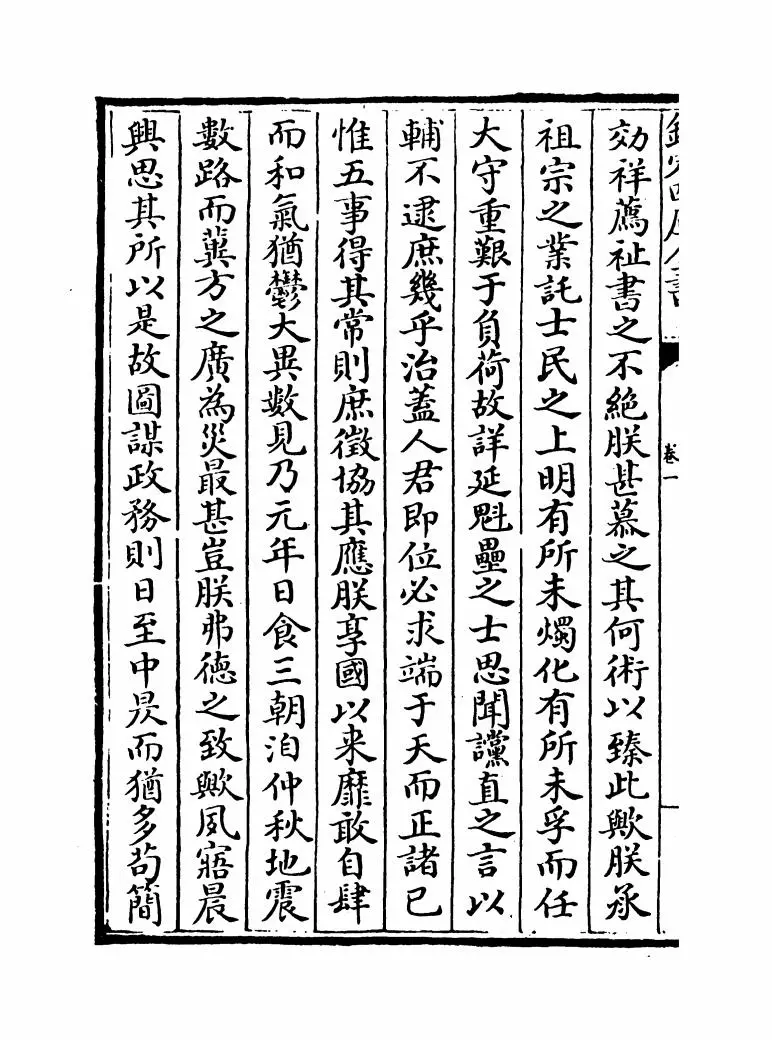 欽定四庫全書
卷一
効祥薦祉書之不絶朕甚慕之其何術以臻此歟朕承
祖宗之業託士民之上明有所未燭化有所未孚而任
大守重艱于負荷故詳延魁壘之士思聞讜直之言以
輔不逮庶幾乎治蓋人君即位必求端于天而正諸已
惟五事得其常則庶徵協其應朕享國以来靡敢自肆
而和氣猶鬱大異數見乃元年日食三朝洎仲秋地震
數路而冀方之廣為災最甚豈朕弗德之致歟夙寤晨
興思其所以是故圖謀政務則日至中昃而猶多茍簡